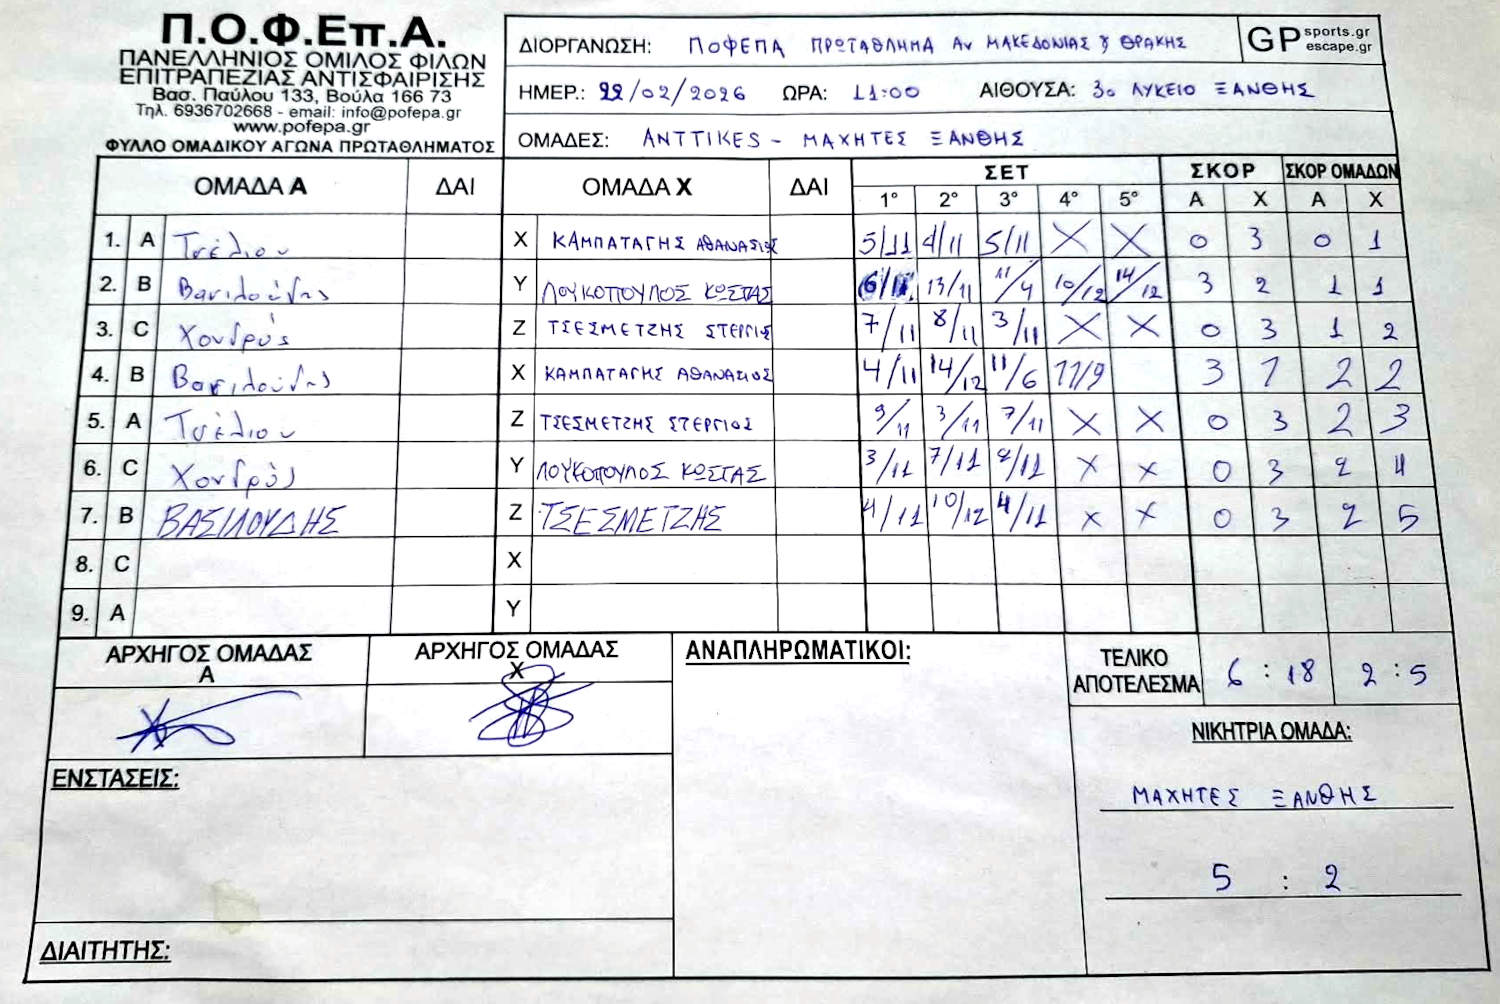 Π.Ο.Φ.Επ.Α.
ΠΑΝΕΛΛΗΝΙΟΣ ΟΜΙΛΟΣ ΦΙΛΩΝ
ΕΠΙΤΡΑΠΕΖΙΑΣ ΑΝΤΙΣΦΑΙΡΙΣΗΣ
Βασ. Παύλου 133, Βούλα 166 73
Τηλ. 6936702668 - email: info@pofepa.gr
www.pofepa.gr
ΦΥΛΛΟ ΟΜΑΔΙΚΟΥ ΑΓΩΝΑ ΠΡΩΤΑΘΛΗΜΑΤΟΣ
ΔΙΟΡΓΑΝΩΣΗ: ΠΟΦΕΠΑ ΠΡΩΤΑΘΛΗΜΑ ΑΝ ΜΑΚΕΔΟΝΙΑΣ & ΘΡΑΚΗΣ
GP sports.gr escape.gr
ΗΜΕΡ.: 22/02/2026 ΩΡΑ: 11:00 ΑΙΘΟΥΣΑ: 3ο ΛΥΚΕΙΟ ΞΑΝΘΗΣ
ΟΜΑΔΕΣ: ANTTIKES - ΜΑΧΗΤΕΣ ΞΑΝΘΗΣ
ΟΜΑΔΑ Α ΔΑΙ ΟΜΑΔΑ Χ ΔΑΙ ΣΕΤ ΣΚΟΡ ΣΚΟΡ ΟΜΑΔΩΝ
1° 2° 3° 4° 5° Α Χ Α Χ
1. A Τσέλιου X ΚΑΜΠΑΤΑΓΗΣ ΑΘΑΝΑΣΙΟΣ 5/11 4/11 5/11 X X 0 3 0 1
2. B Βασιλούδης Y ΛΟΥΚΟΠΟΥΛΟΣ ΚΩΣΤΑΣ 6/11 13/11 11/4 10/12 14/12 3 2 1 1
3. C Χονδρός Z ΤΣΕΣΜΕΤΖΗΣ ΣΤΕΡΓΙΟΣ 7/11 8/11 3/11 X X 0 3 1 2
4. B Βασιλούδης X ΚΑΜΠΑΤΑΓΗΣ ΑΘΑΝΑΣΙΟΣ 4/11 14/12 11/6 11/9 3 1 2 2
5. A Τσέλιου Z ΤΣΕΣΜΕΤΖΗΣ ΣΤΕΡΓΙΟΣ 9/11 3/11 7/11 X X 0 3 2 3
6. C Χονδρός Y ΛΟΥΚΟΠΟΥΛΟΣ ΚΩΣΤΑΣ 3/11 7/11 /11 X X 0 3 2 4
7. B ΒΑΣΙΛΟΥΔΗΣ Z ΤΣΕΣΜΕΤΖΗΣ 4/11 10/12 4/11 X X 0 3 2 5
8. C X
9. A Y
ΑΡΧΗΓΟΣ ΟΜΑΔΑΣ Α ΑΡΧΗΓΟΣ ΟΜΑΔΑΣ Χ ΑΝΑΠΛΗΡΩΜΑΤΙΚΟΙ:
ΤΕΛΙΚΟ ΑΠΟΤΕΛΕΣΜΑ 6 : 18 2 : 5
ΝΙΚΗΤΡΙΑ ΟΜΑΔΑ:
ΜΑΧΗΤΕΣ ΞΑΝΘΗΣ
5 : 2
ΕΝΣΤΑΣΕΙΣ:
ΔΙΑΙΤΗΤΗΣ: